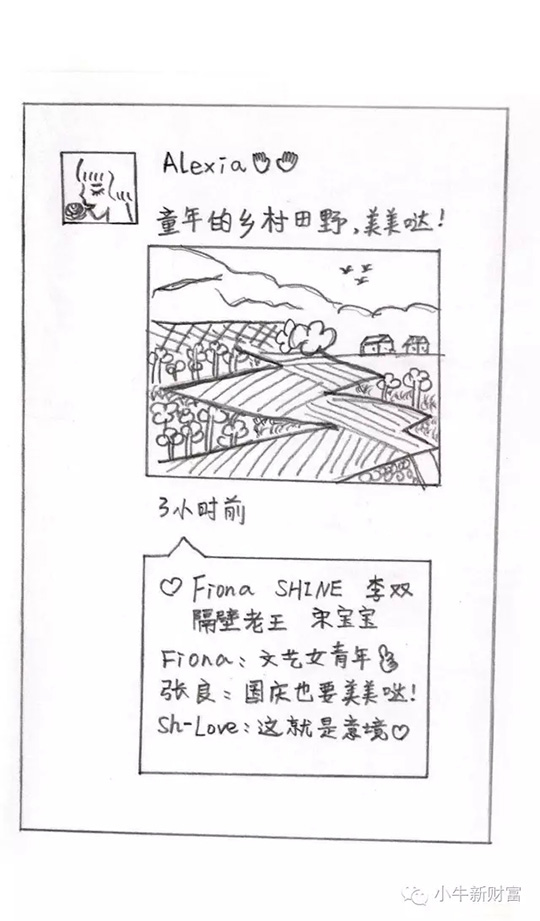 Alexia👋👋
童年的乡村田野,美美哒!
3小时前
♡ Fiona SHINE 李双
隔壁老王 宋宝宝
Fiona:文艺女青年
张良:国庆也要美美哒!
Sh-Love:这就是意境♡
小牛新财富